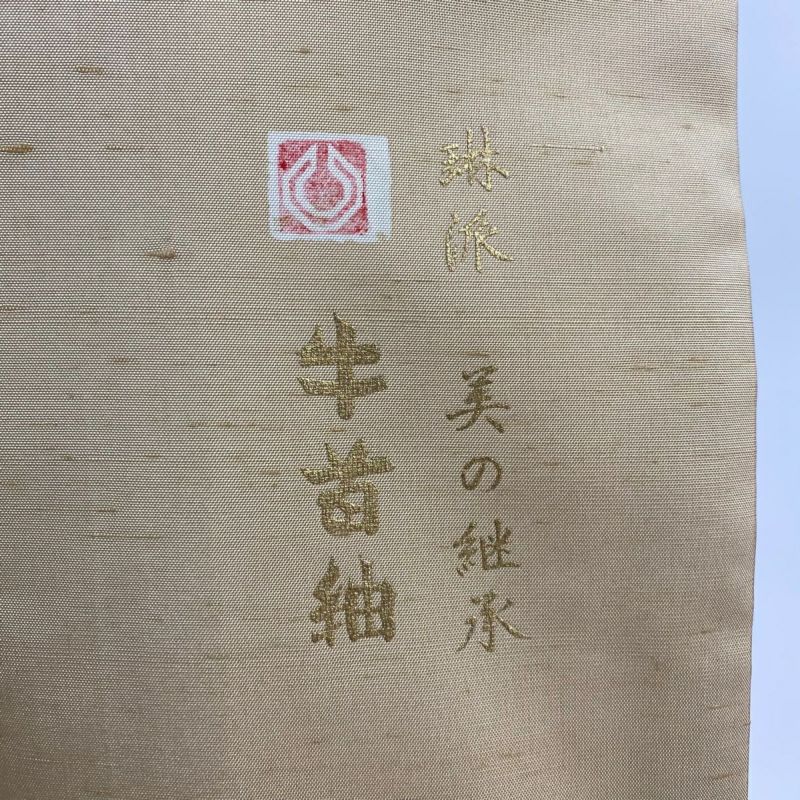 琳派 美の継承
牛首紬